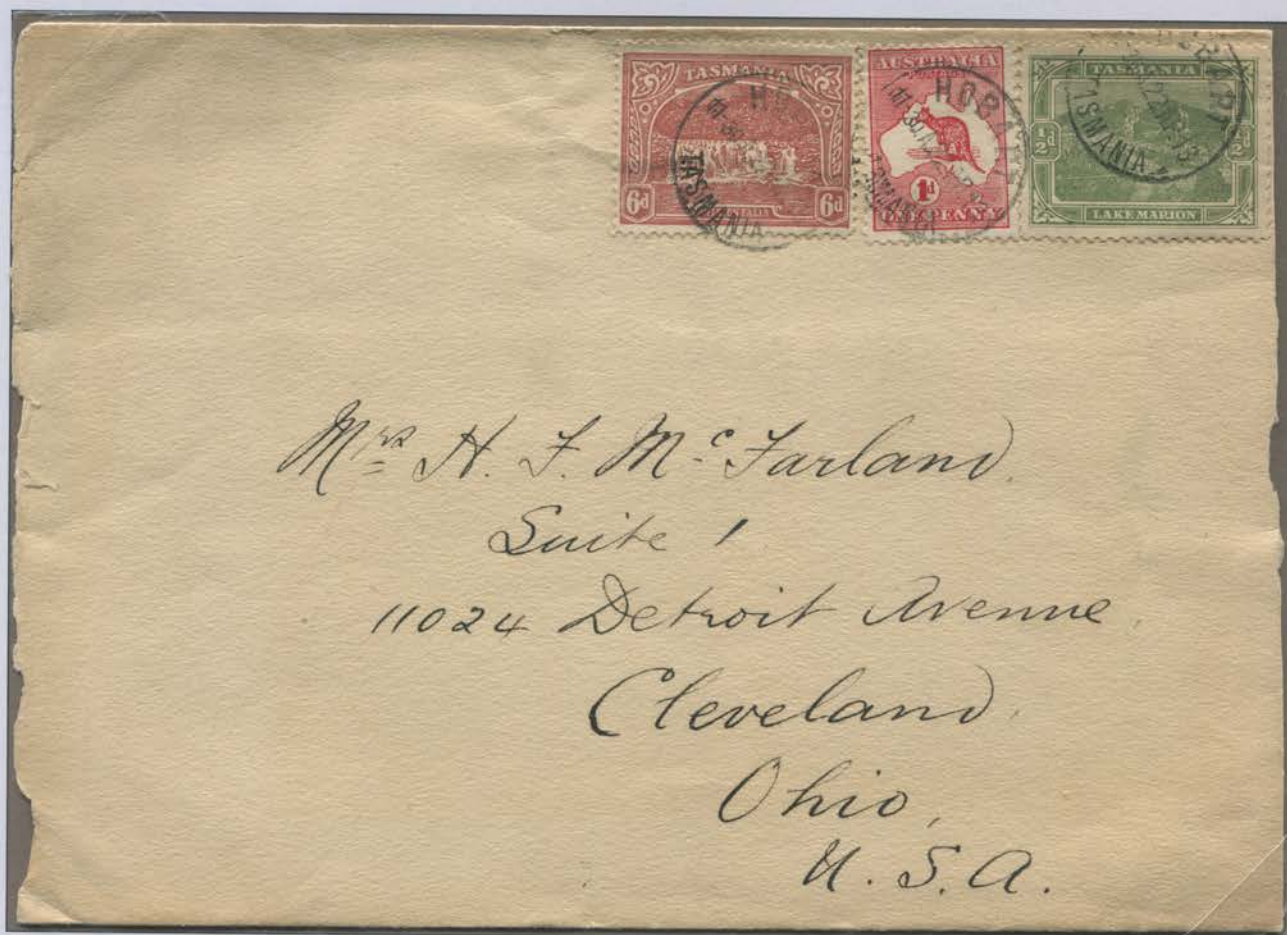 TASMANIA
6d 6d
TASMANIA
AUSTRALIA
POSTAGE
1d
ONE PENNY
HOBART
TASMANIA
½d ½d
LAKE MARION
HOBART
TASMANIA
Mrs H. F. McFarland.
Suite 1
11024 Detroit Avenue,
Cleveland,
Ohio,
U. S. A.